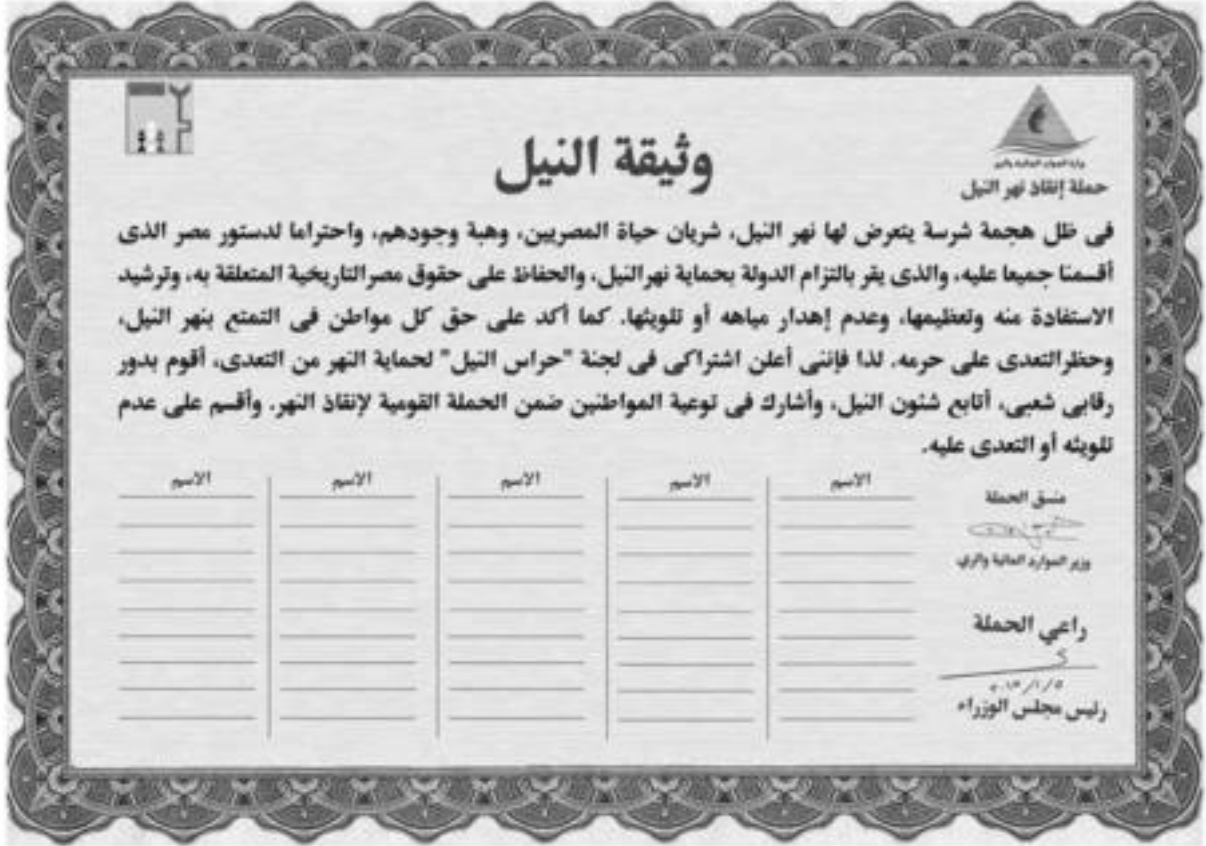 وزارة الموارد المائية والرى
حملة إنقاذ نهر النيل
وثيقة النيل
فى ظل هجمة شرسة يتعرض لها نهر النيل، شريان حياة المصريين، وهبة وجودهم، واحتراما لدستور مصر الذى
أقسمنا جميعا عليه، والذى يقر بالتزام الدولة بحماية نهرالنيل، والحفاظ على حقوق مصرالتاريخية المتعلقة به، وترشيد
الاستفادة منه وتعظيمها، وعدم إهدار مياهه أو تلويثها. كما أكد على حق كل مواطن فى التمتع بنهر النيل،
وحظرالتعدى على حرمه. لذا فإننى أعلن اشتراكى فى لجنة "حراس النيل" لحماية النهر من التعدى، أقوم بدور
رقابى شعبى، أتابع شئون النيل، وأشارك فى توعية المواطنين ضمن الحملة القومية لإنقاذ النهر. وأقسم على عدم
تلويثه أو التعدى عليه.
الاسم الاسم الاسم الاسم الاسم
منسق الحملة
وزير الموارد المائية والري
راعي الحملة
رئيس مجلس الوزراء